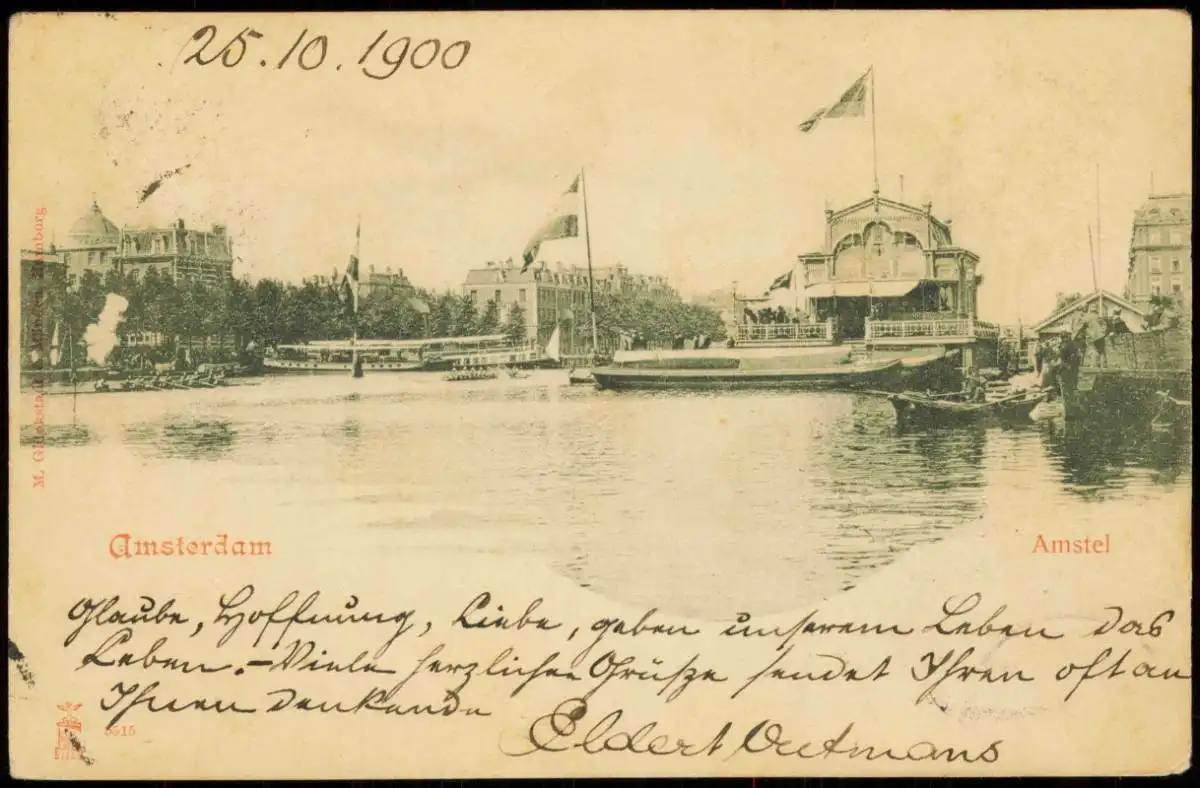 25.10.1900
M. Glückstadt & Münden, Hamburg.
Amsterdam
Amstel
Glaube, Hoffnung, Liebe, geben unserem Leben das
Leben. – Viele herzliche Grüße sendet Ihren oft an
Ihnen denkende
Eldert Oetmans
5515